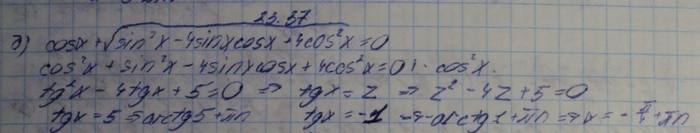 23.37
д) cosx + √sin²x - 4sinxcosx + 4cos²x = 0
cos²x + sin²x - 4sinxcosx + 4cos²x = 0 | : cos²x.
tg²x - 4tgx + 5 = 0 ⇒ tgx = z ⇒ z² - 4z + 5 = 0
tgx = 5 ⇒ arctg5 + πn tgx = -1 ⇒ -arctg1 + πn ⇒ x = -π/4 + πn